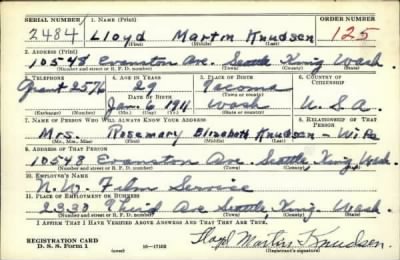 SERIAL NUMBER 1. NAME (Print) ORDER NUMBER
2484 Lloyd Martin Knudsen 125
(First) (Middle) (Last)
2. ADDRESS (Print)
10548 Evanston Ave. Seattle King Wash.
(Number and street or R. F. D. number) (Town) (County) (State)
3. TELEPHONE 4. AGE IN YEARS 5. PLACE OF BIRTH 6. COUNTRY OF CITIZENSHIP
Grant 2576 29 Tacoma
(Town or county)
Jan. 6, 1911 Wash U.S.A.
(Exchange) (Number) (Mo.) (Day) (Yr.) (State or country)
7. NAME OF PERSON WHO WILL ALWAYS KNOW YOUR ADDRESS 8. RELATIONSHIP OF THAT PERSON
Mrs. Rosemary Elizabeth Knudsen - Wife
(Mr., Mrs., Miss) (First) (Middle) (Last)
9. ADDRESS OF THAT PERSON
10548 Evanston Ave. Seattle, King, Wash.
(Number and street or R. F. D. number) (Town) (County) (State)
10. EMPLOYER'S NAME
N.W. Film Service
11. PLACE OF EMPLOYMENT OR BUSINESS
2330 Third Ave Seattle, King, Wash.
(Number and street or R. F. D. number) (Town) (County) (State)
I AFFIRM THAT I HAVE VERIFIED ABOVE ANSWERS AND THAT THEY ARE TRUE.
REGISTRATION CARD
D. S. S. Form 1 (over) 16—17105 Lloyd Martin Knudsen
(Registrant's signature)